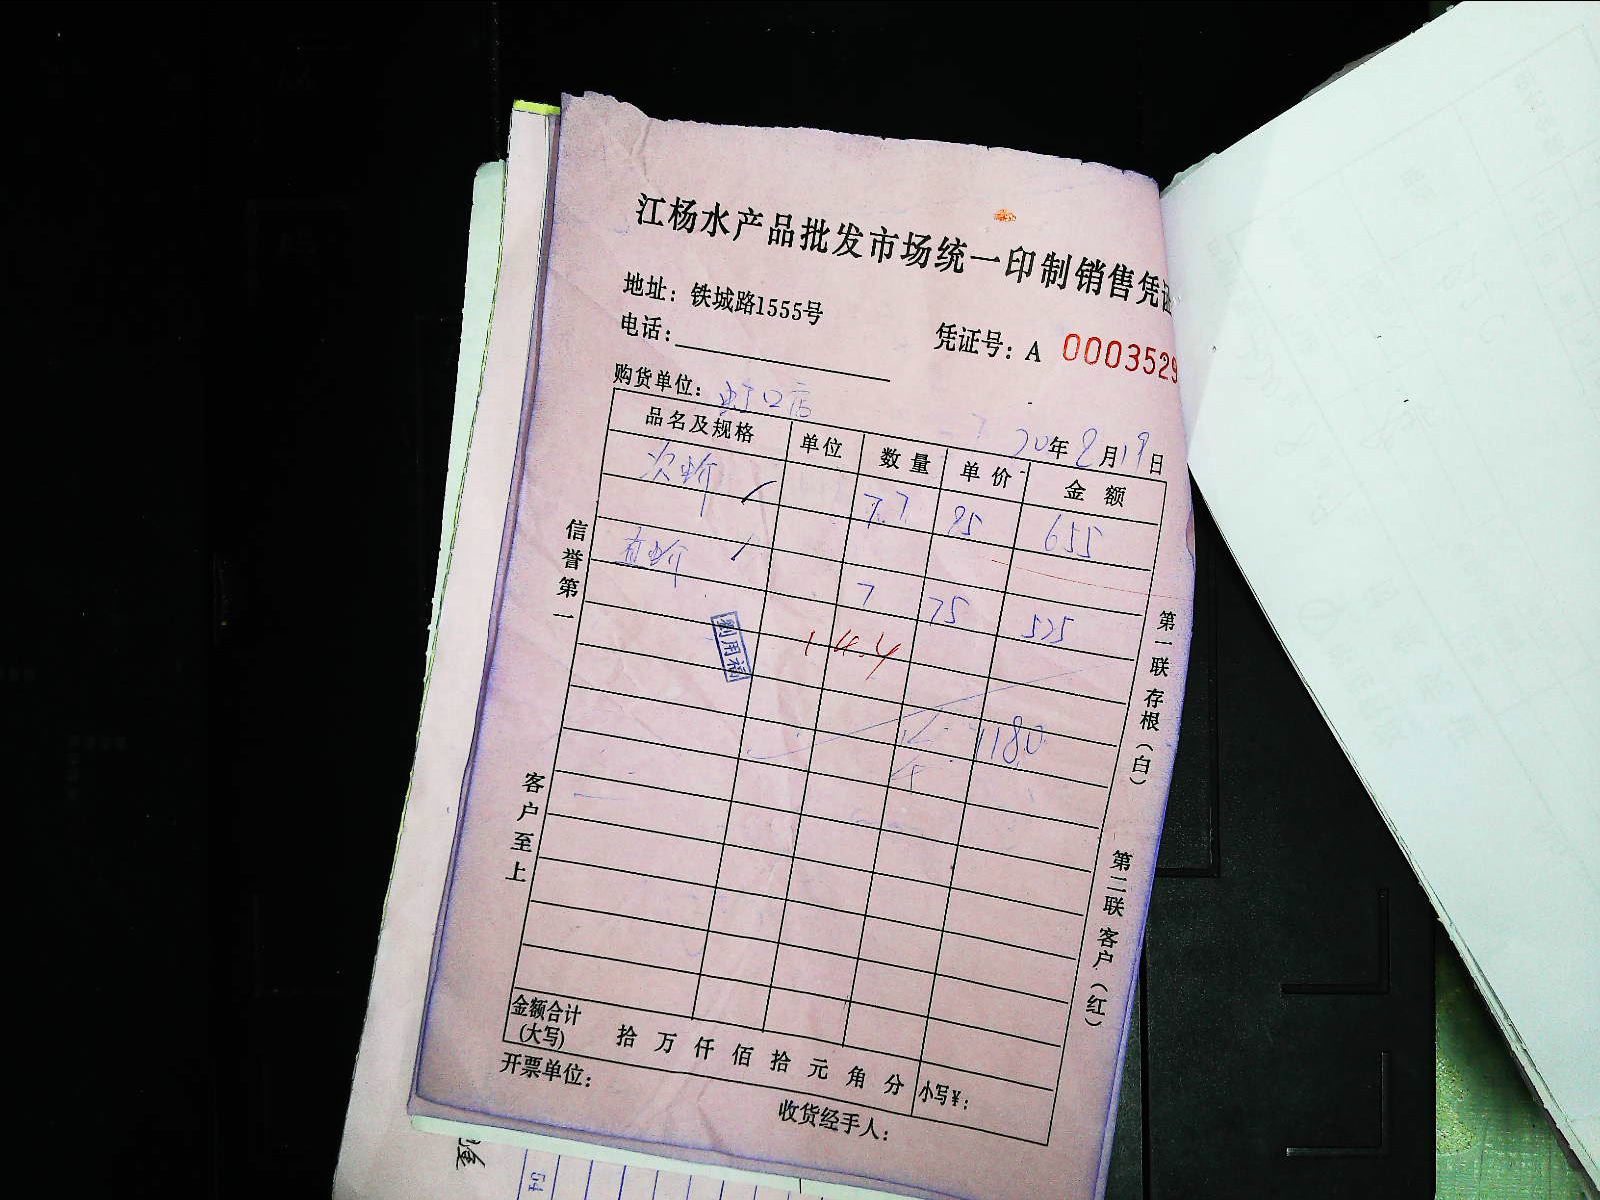 江杨水产品批发市场统一印制销售凭证
地址：铁城路1555号
电话：
凭证号：A 0003529
购货单位：虹口店
20年8月19日
品名及规格 单位 数量 单价 金额
7.7 85 655
7 75 525
14.4
1180
信誉第一
客户至上
第一联 存根（白）
第二联 客户（红）
金额合计
(大写) 拾 万 仟 佰 拾 元 角 分 小写¥：
开票单位：
收货经手人：
54